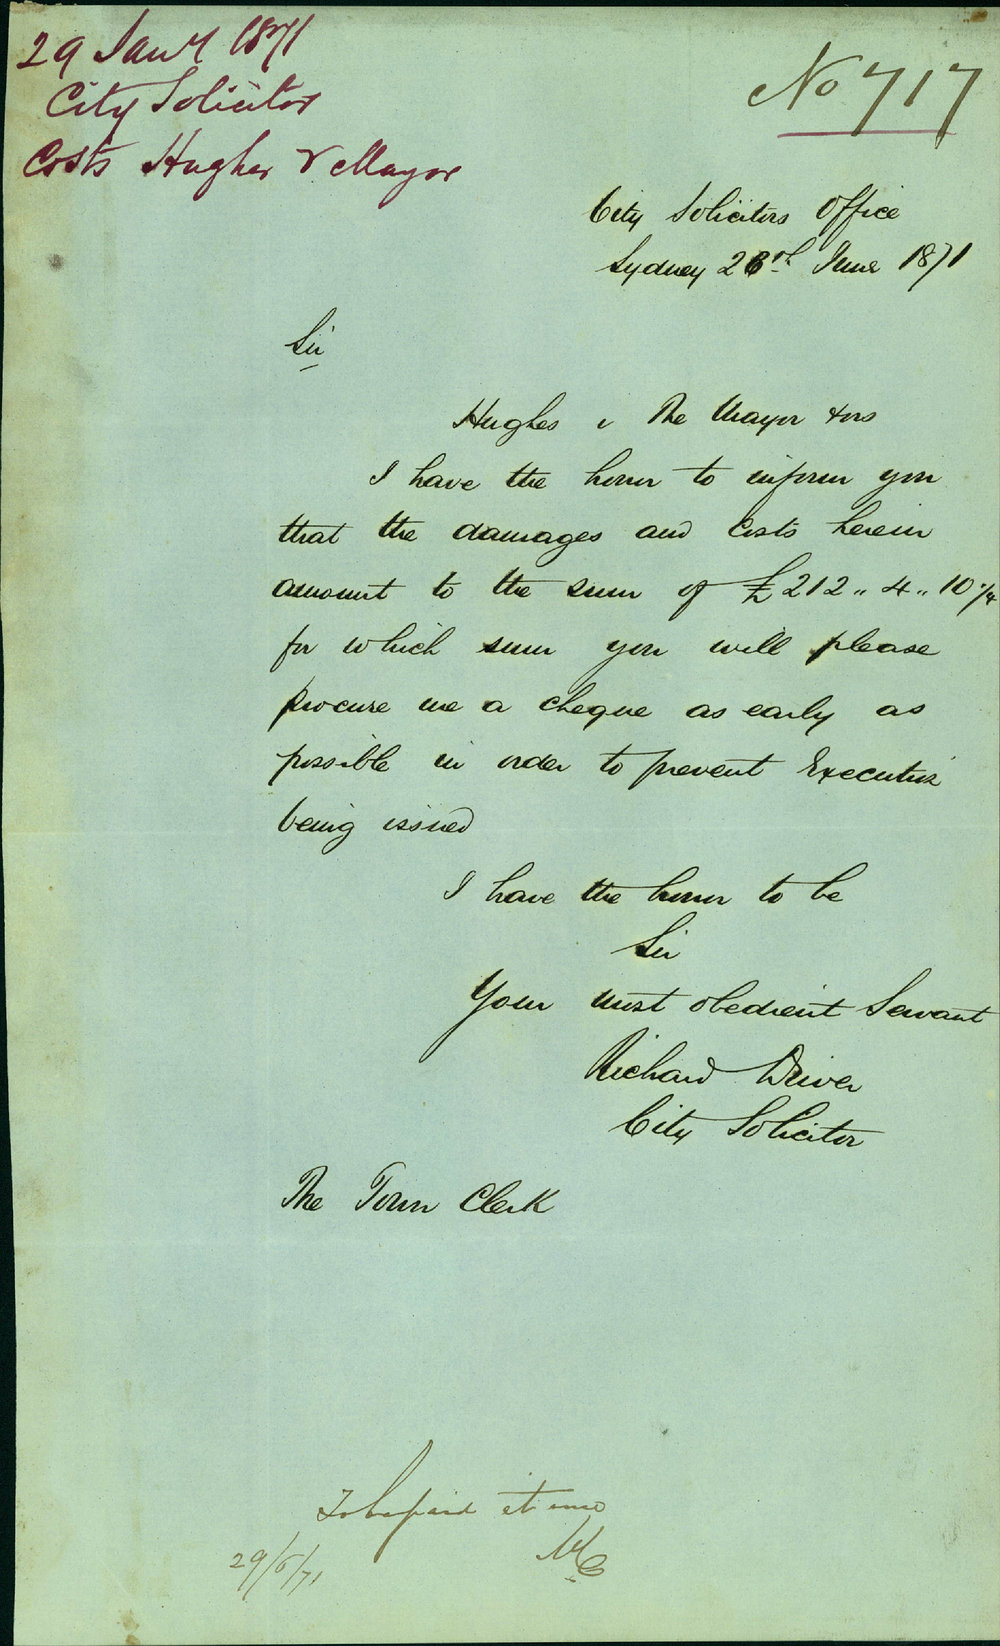 29 Jany 1871
City Solicitor
Costs Hughes v Mayor
No 717
City Solicitors Office
Sydney 28th June 1871
Sir
Hughes v The Mayor &ors
I have the honor to inform you
that the damages and Costs herein
amount to the sum of £212 " 4 " 10 1/4
for which sum you will please
procure me a cheque as early as
possible in order to prevent Execution
being issued
I have the honor to be
Sir
Your most obedient Servant
Richard Driver
City Solicitor
The Town Clerk
To be paid at once
29/6/71